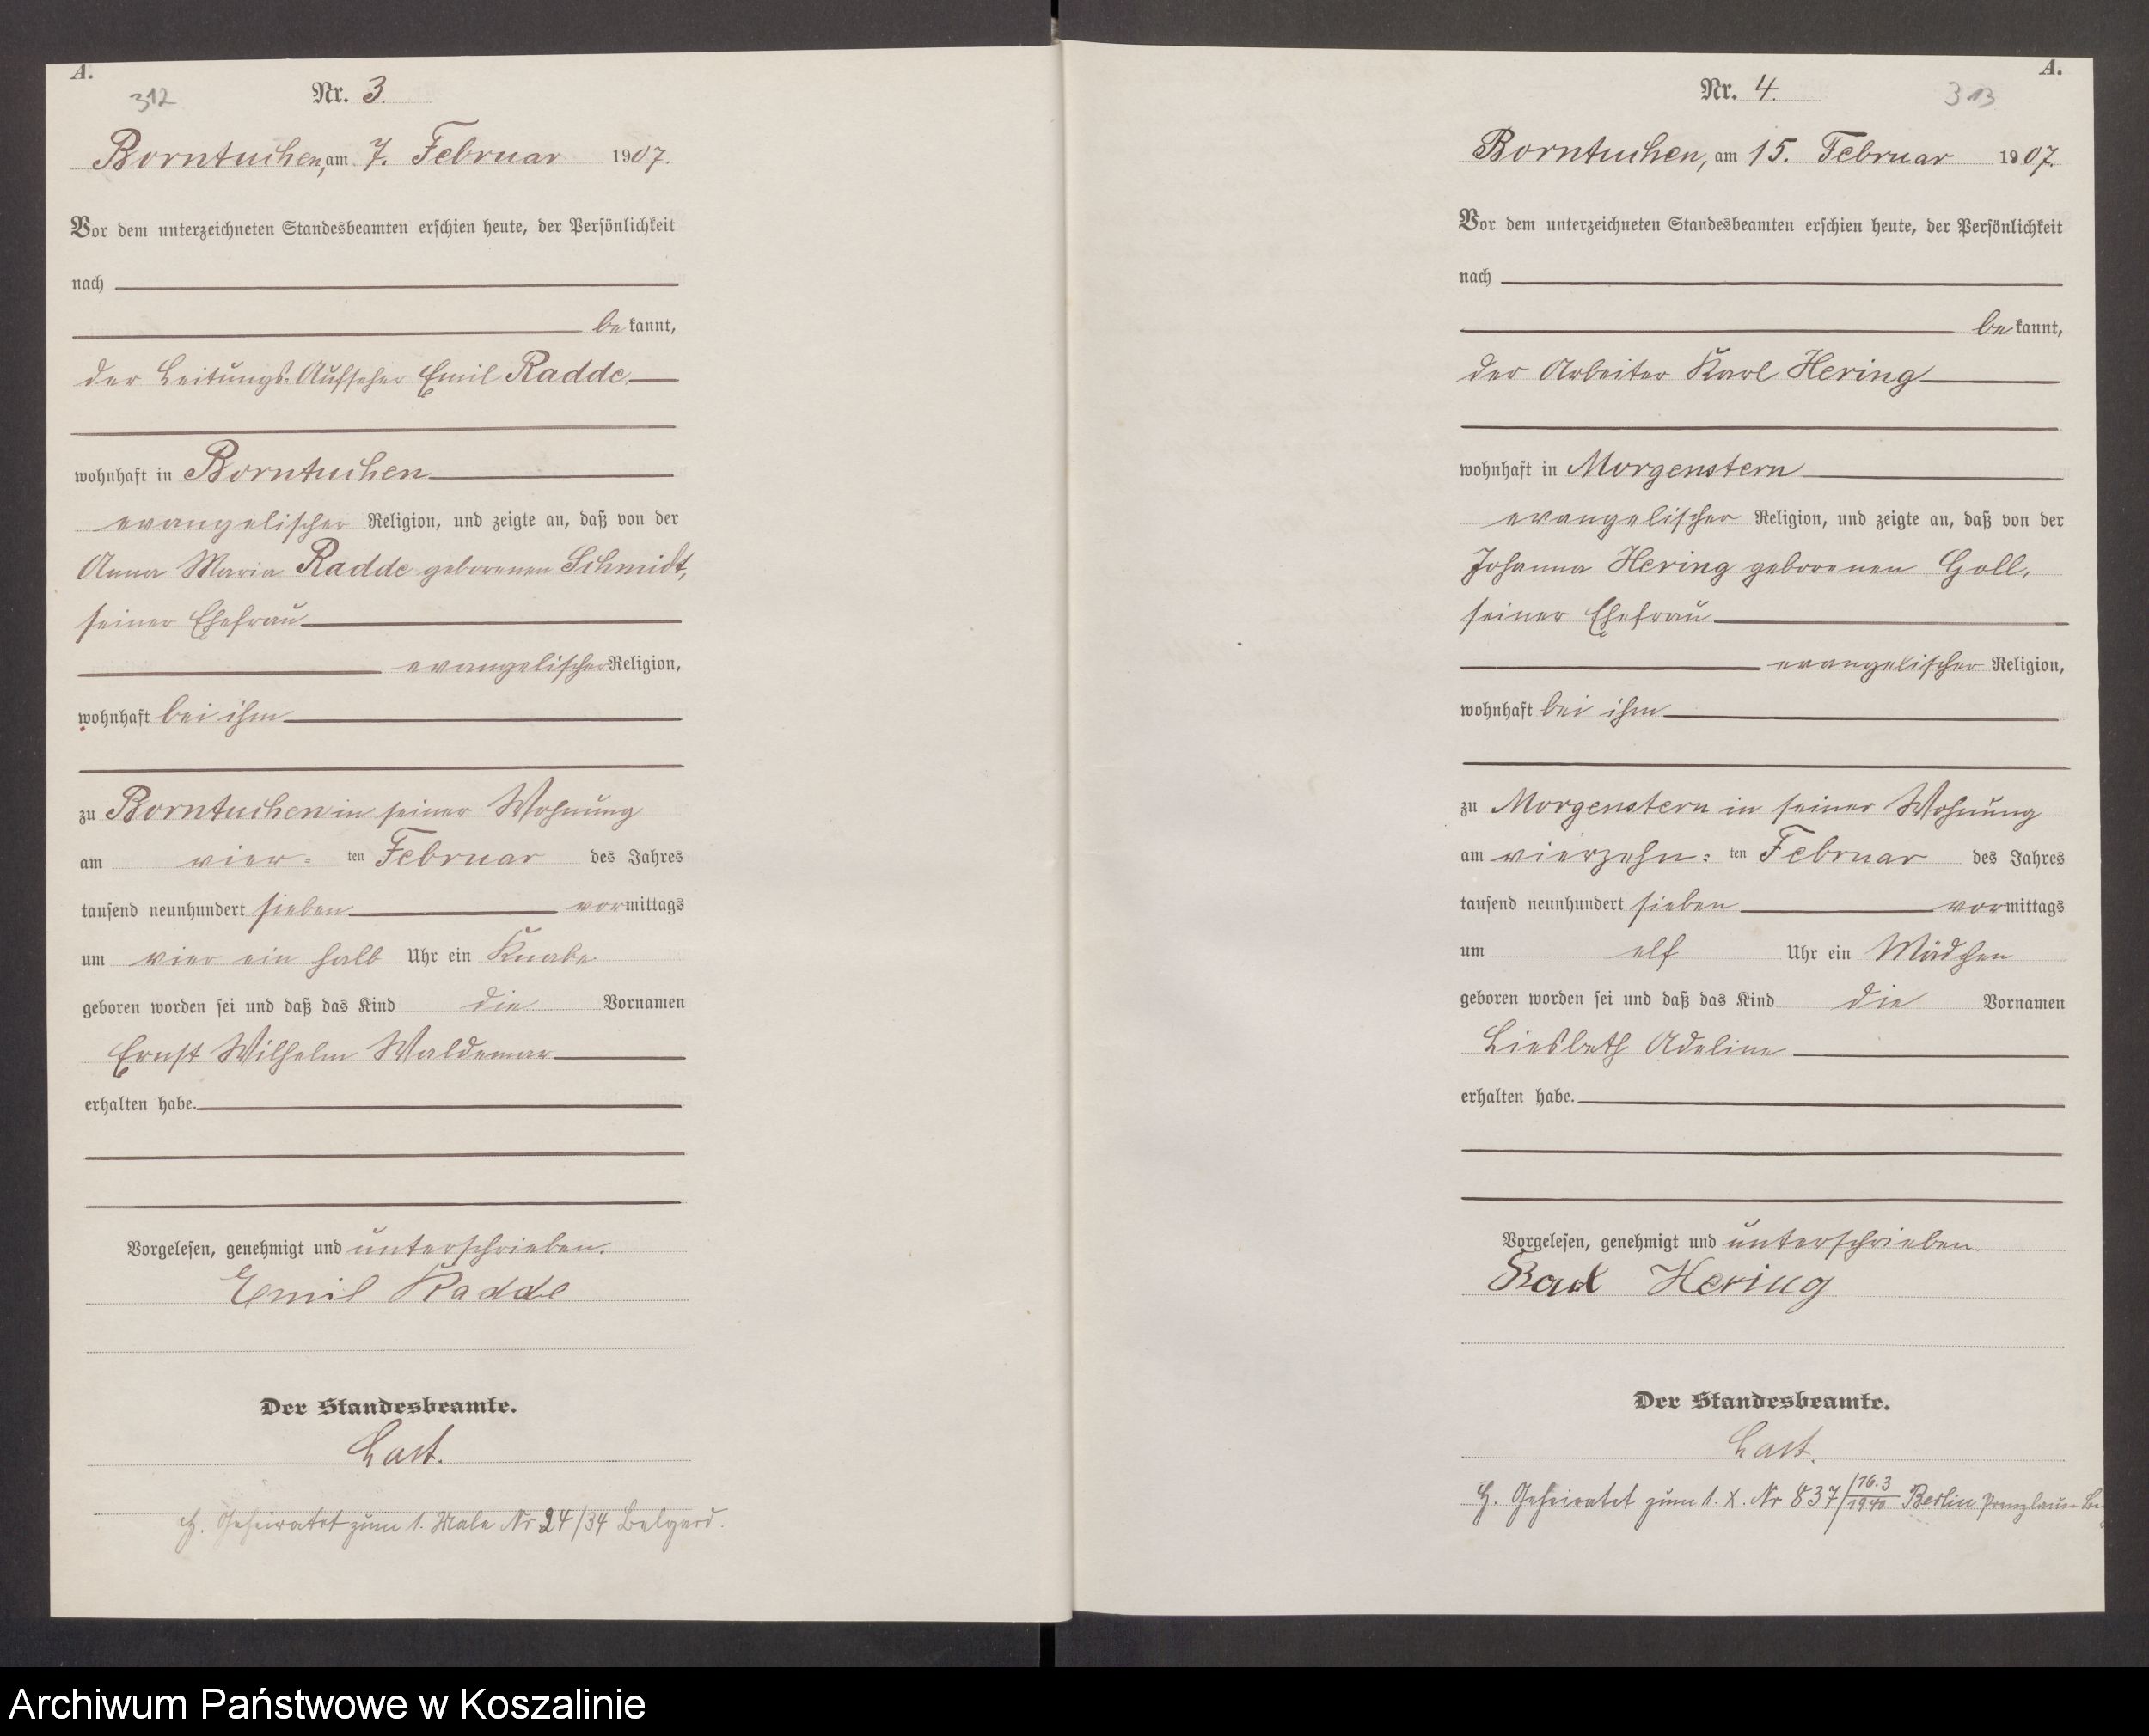 A.
312
Nr. 3.
Borntuchen, am 7. Februar 1907.
Vor dem unterzeichneten Standesbeamten erschien heute, der Persönlichkeit
nach
be kannt,
der Leitungs-Aufseher Emil Radde
wohnhaft in Borntuchen
evangelischer Religion, und zeigte an, daß von der
Anna Maria Radde geborenen Schmidt,
seiner Ehefrau
evangelischer Religion,
wohnhaft bei ihm
zu Borntuchen in seiner Wohnung
am vier-ten Februar des Jahres
tausend neunhundert sieben vormittags
um vier ein halb Uhr ein Knabe
geboren worden sei und daß das Kind die Vornamen
Ernst Wilhelm Waldemar
erhalten habe.
Vorgelesen, genehmigt und unterschrieben.
Emil Radde
Der Standesbeamte.
Last.
H. Geheiratet zum 1. Male Nr 24/34 Belgard.
A.
313
Nr. 4.
Borntuchen, am 15. Februar 1907.
Vor dem unterzeichneten Standesbeamten erschien heute, der Persönlichkeit
nach
be kannt,
der Arbeiter Karl Hering
wohnhaft in Morgenstern
evangelischer Religion, und zeigte an, daß von der
Johanna Hering geborenen Goll,
seiner Ehefrau
evangelischer Religion,
wohnhaft bei ihm
zu Morgenstern in seiner Wohnung
am vierzehn-ten Februar des Jahres
tausend neunhundert sieben vormittags
um elf Uhr ein Mädchen
geboren worden sei und daß das Kind die Vornamen
Liesbeth Adeline
erhalten habe.
Vorgelesen, genehmigt und unterschrieben
Karl Hering
Der Standesbeamte.
Last.
H. Geheiratet zum 1. X. Nr 837/16.3 1940 Berlin Prenzlauer
Archiwum Państwowe w Koszalinie